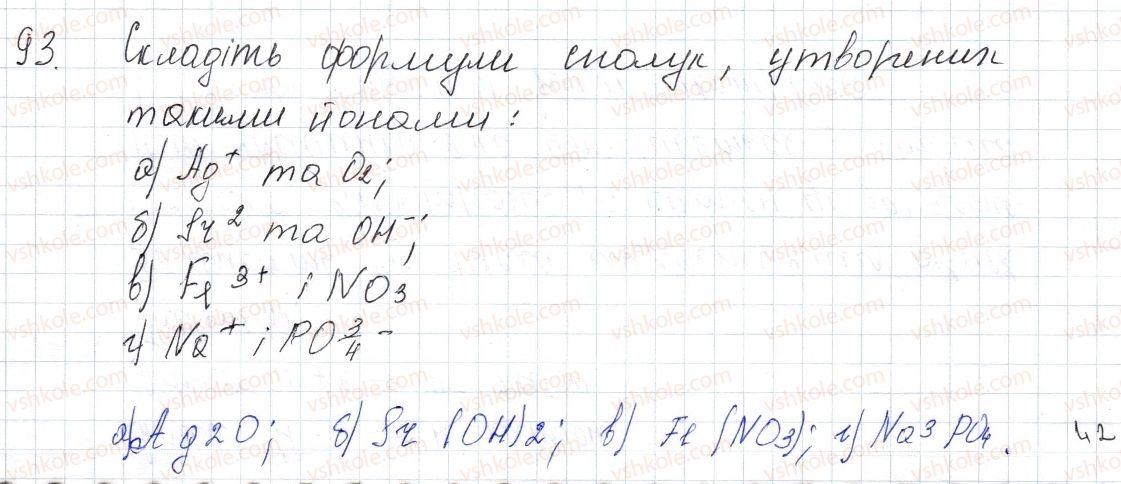 93. Складіть формули сполук, утворених
такими йонами:
а) Ag⁺ та O₂;
б) Sr² та OH⁻;
в) Fe³⁺ і NO₃
г) Na⁺ і PO₄³⁻
а) Ag2O; б) Sr(OH)2; в) Fe(NO3); г) Na3PO₄. 42